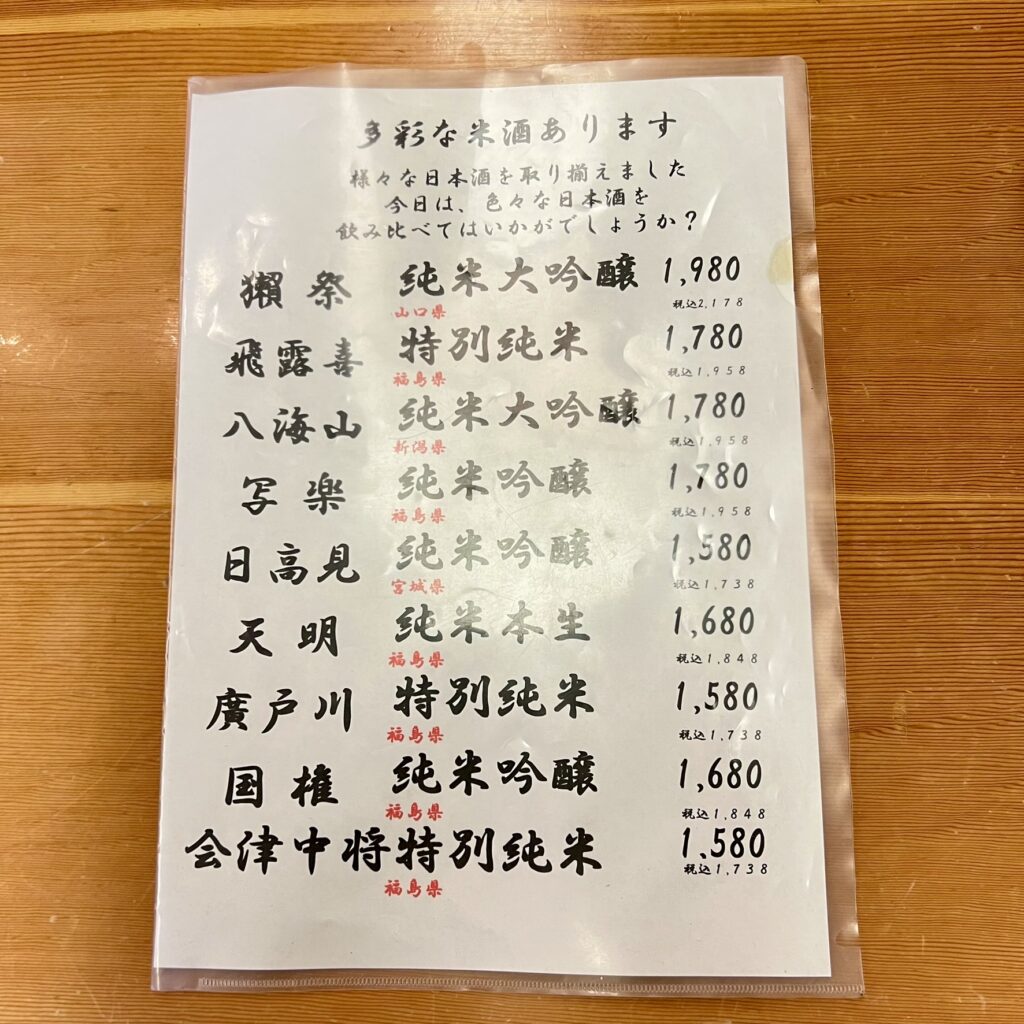 多彩な米酒あります
様々な日本酒を取り揃えました
今日は、色々な日本酒を
飲み比べてはいかがでしょうか？
獺祭 純米大吟醸 1,980
山口県 税込2,178
飛露喜 特別純米 1,780
福島県 税込1,958
八海山 純米大吟醸 1,780
新潟県 税込1,958
写楽 純米吟醸 1,780
福島県 税込1,958
日高見 純米吟醸 1,580
宮城県 税込1,738
天明 純米本生 1,680
福島県 税込1,848
廣戸川 特別純米 1,580
福島県 税込1,738
国権 純米吟醸 1,680
福島県 税込1,848
会津中将特別純米 1,580
福島県 税込1,738